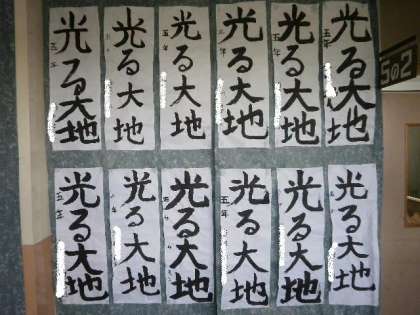 光る大地
五年
光る大地
五年
光る大地
五年
光る大地
五年
光る大地
五年
光る大地
五年
5の2
光る大地
五年
光る大地
五年
光る大地
五年
光る大地
光る大地
光る大地
五年